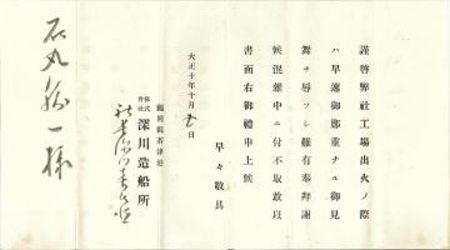 謹啓弊社工場出火ノ際
ハ早速御鄭重ナル御見
舞ヲ辱フシ難有奉拜謝
候混雜中ニ付不取敢以
書面右御禮申上候
早々敬具
大正十年十月 日
福岡縣若津港
株式會社深川造船所
石丸勝一様